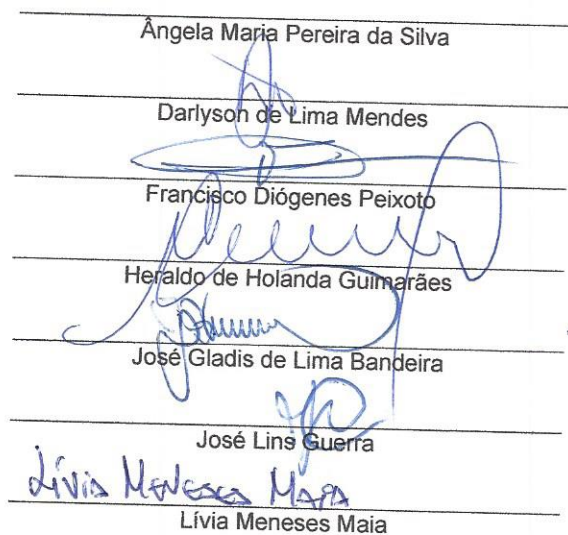 Ângela Maria Pereira da Silva
Darlyson de Lima Mendes
Francisco Diógenes Peixoto
Heraldo de Holanda Guimarães
José Gladis de Lima Bandeira
José Lins Guerra
Lívia Meneses Maia
Lívia Meneses Maia